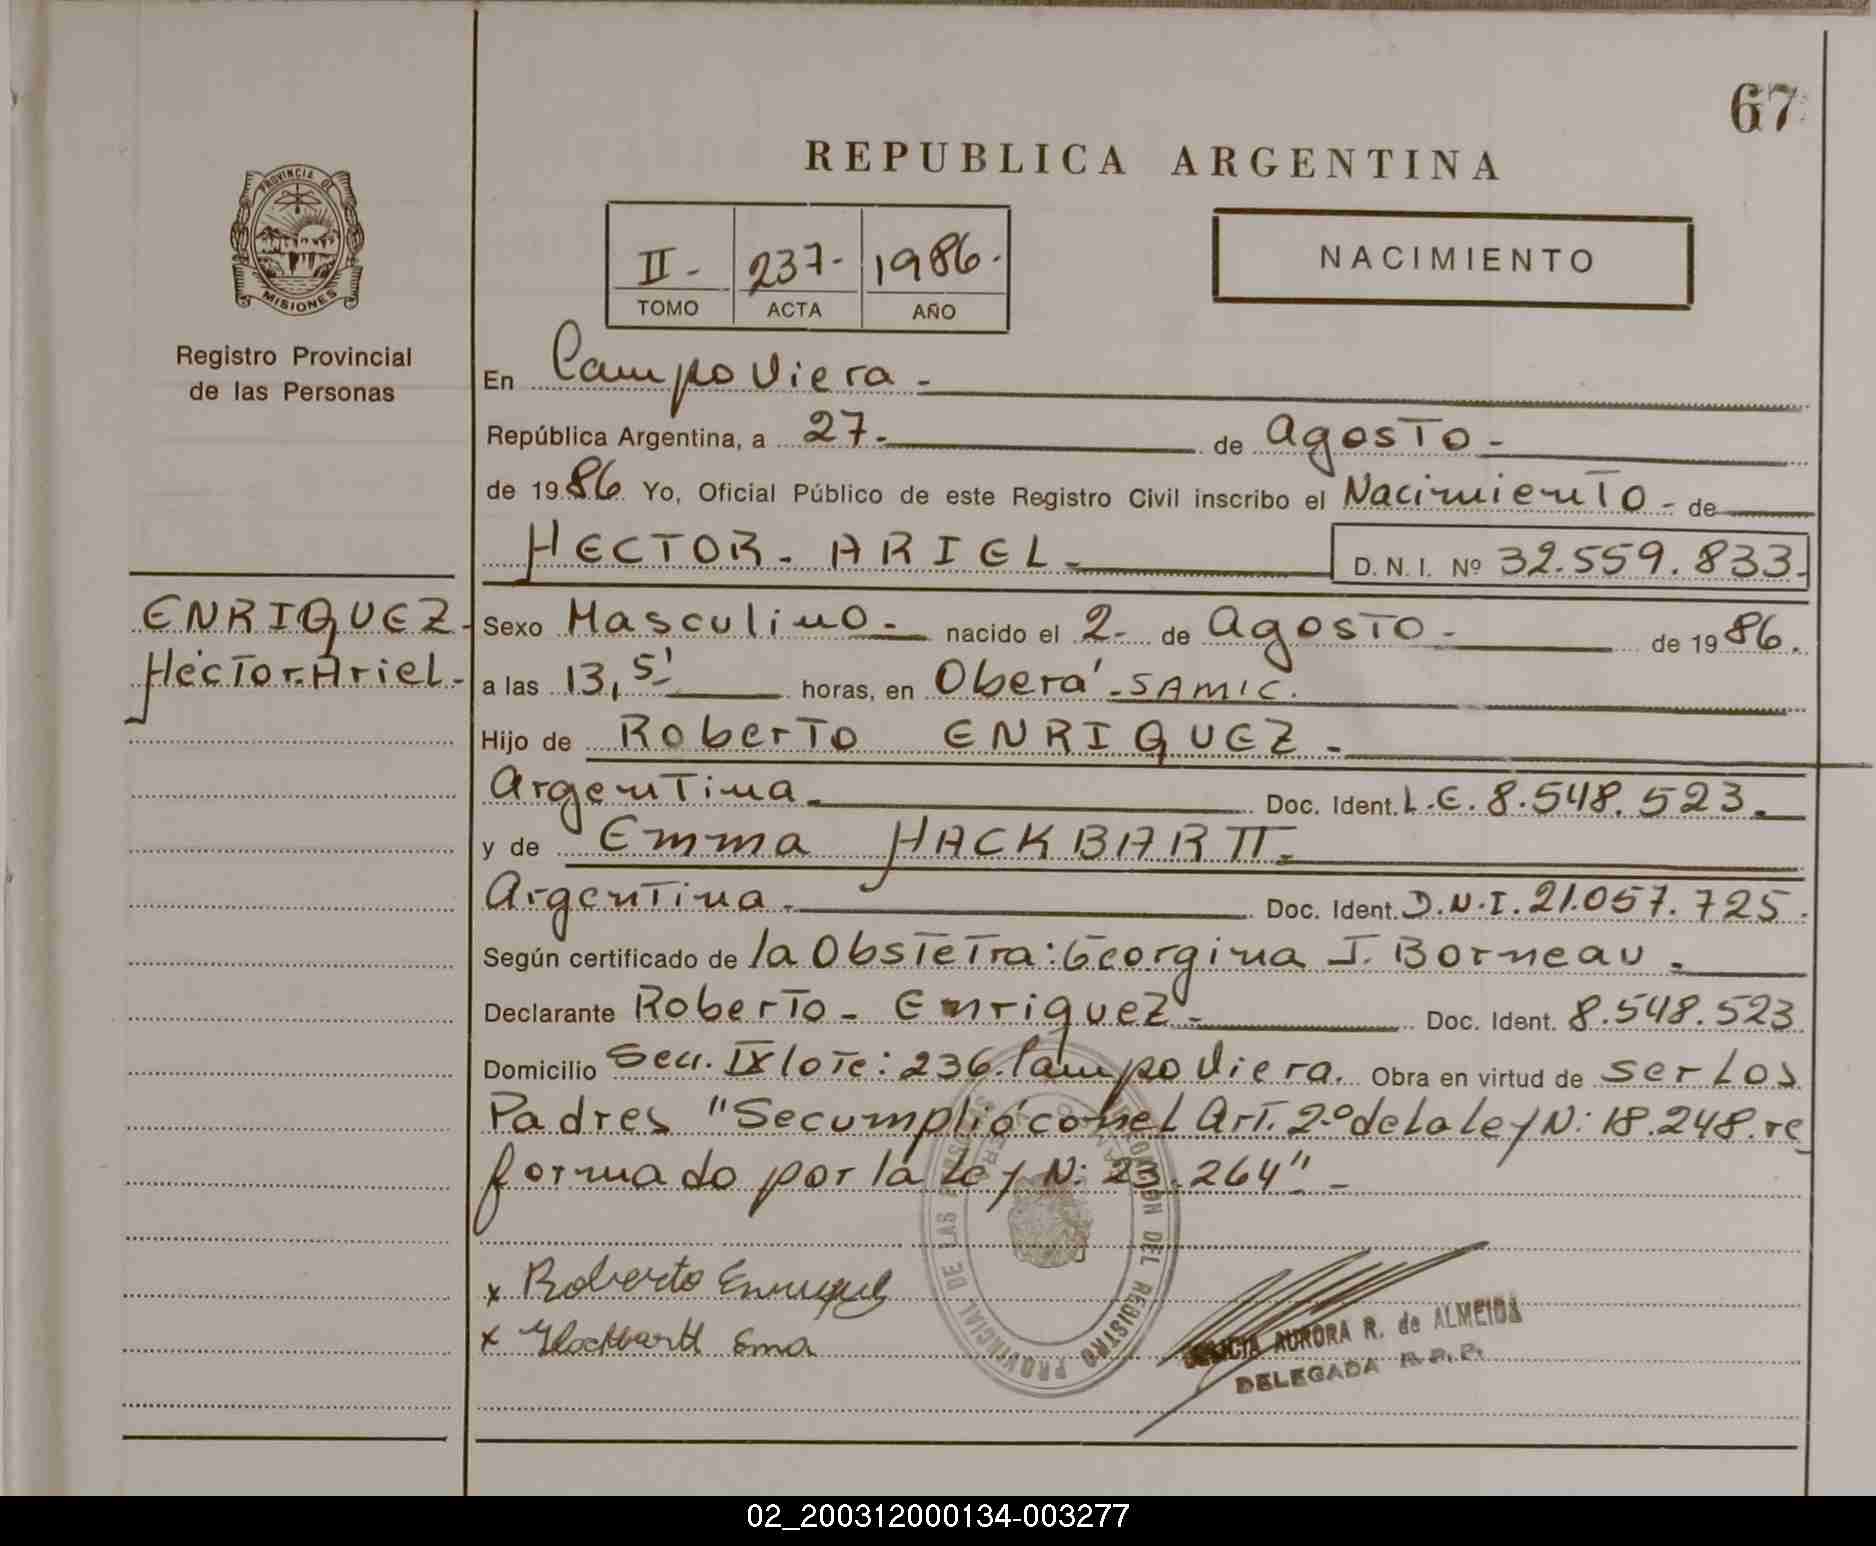 67
REPUBLICA ARGENTINA
PROVINCIA DE
MISIONES
Registro Provincial
de las Personas
II - 237- 1986.
TOMO ACTA AÑO
NACIMIENTO
En Campo Viera -
República Argentina, a 27- de Agosto -
de 1986. Yo, Oficial Público de este Registro Civil inscribo el Nacimiento - de
HECTOR - ARIEL - D. N. I. Nº 32.559.833-
ENRIQUEZ -
Hector. Ariel -
Sexo Masculino - nacido el 2- de Agosto - de 1986.
a las 13, 5' horas, en Oberá - SAMIC.
Hijo de Roberto ENRIQUEZ -
Argentina - Doc. Ident. L.E. 8.548.523 -
y de Emma HACKBARTT -
Argentina - Doc. Ident. D.N.I. 21.057.725.
Según certificado de la Obstetra: Georgina J. Borneau -
Declarante Roberto - Enriquez - Doc. Ident. 8.548.523
Domicilio Secc. IX lote: 236. Campo Viera. Obra en virtud de ser Los
Padres "Se cumplió con el Art. 2º de la ley N: 18.248. re
formado por la Ley N: 23.264" -
x Roberto Enriquez
x Hackbartt Ema
AURORA R. de ALMEIDA
DELEGADA R. P. P.
PROVINCIAL DE LAS
DEL REGISTRO
02_200312000134-003277